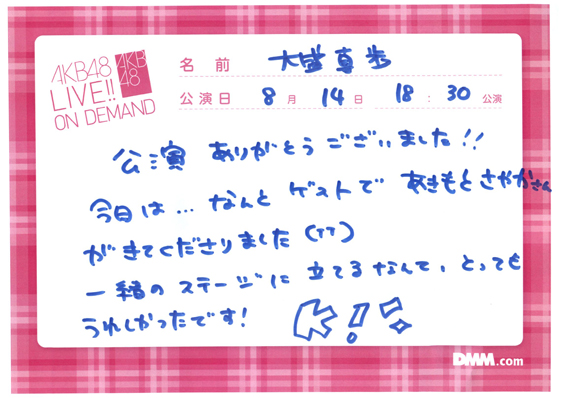 AKB48
LIVE!!
ON DEMAND
AKB
48
名前 大盛真歩
公演日 8月 14日 18:30 公演
公演 ありがとうございました!!
今日は…なんと ゲストで あきもとさやかさん
がきてくださりました(TT)
一緒のステージに 立てるなんて、とっても
うれしかったです!
K!!
DMM.com